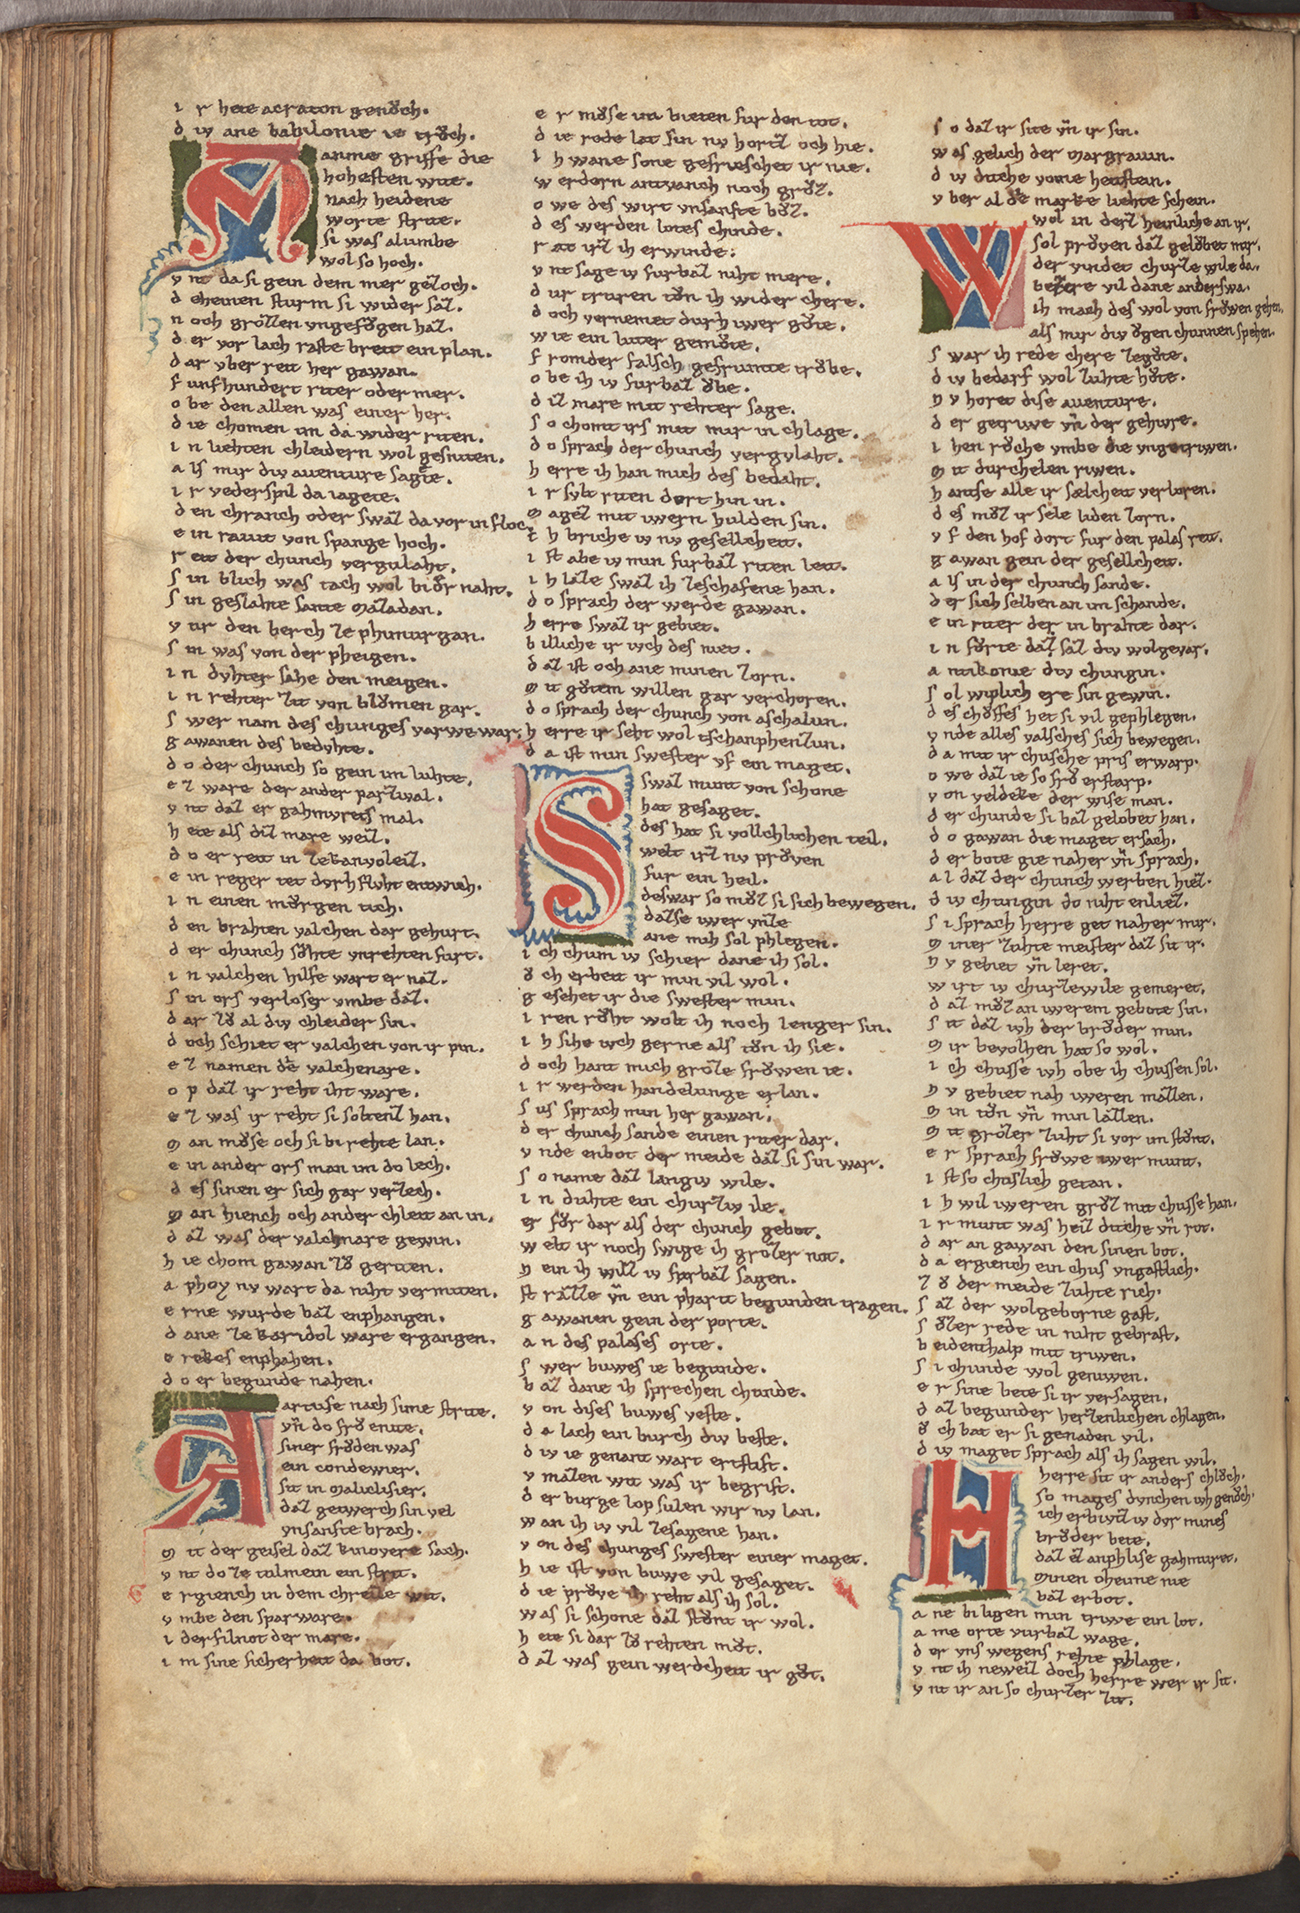 i r hete acraton genůch.
d iv ane babilonie ie trůch.
Manne griffe die
hohesten wite.
nach heidene
worte strite.
si was alumbe
wol so hoch.
v nt da si gein dem mer gezoch.
d eheinen sturm si wider saz.
n och grozzen vngefůgen haz.
d er vor lach raste breit ein plan.
d ar vber reit her gawan.
f unfhundert riter oder mer.
o be den allen was einer her.
d ie chomen im da wider riten.
i n liehten chleidern wol gesniten.
a ls mir div auenture sagte.
i r vederspil da iagete.
d en chranch oder swaz da vor in floch
e in ravit von spange hoch.
r eit der chunch vergulaht.
s in blich was tach wol bi der naht.
s in geslahte sante mazadan.
v ur den berch ze phimurgan.
s in was von der pheigen.
i n dvhter sahe den meigen.
i n rehter zit von blůmen gar.
s wer nam des chunges varwe war.
g awanen des bedvhte.
d o der chunch so gein im luhte.
e z ware der ander parzival.
v nt daz er gahmurets mal.
h ete als diz mare weiz.
d o er reit in ze kanvoleiz.
e in reger tet dvrh fluht entwich.
i n einen můrgen tich.
d en brahten valchen dar gehurt.
d er chunch sůhte vnrehten furt.
i n valchen hilfe wart er naz.
s in ors verlos er vmbe daz.
d ar zů al div chleider sin.
d och schiet er valchen von ir pin.
e z namen die valchenare.
o p daz ir reht iht ware.
e z was ir reht si soltenz han.
m an můse och si bi rehte lan.
e in ander ors man im do lech.
d es sinen er sich gar verzech.
m an hiench och ander chleit an in.
d az was der valchnare gewin.
h ie chom gawan zů geriten.
a phoy nv wart da niht vermiten.
e rne wurde baz enphangen.
d ane ze karidol ware ergangen.
e rekes enphahen.
d o er begunde nahen.
Artuse nach sime strite.
vñ do frů enite.
siner frůden was
ein condewier.
sit in maliclisier.
daz getwerch sin vel
vnsanfte brach.
m it der geisel daz kinoyere sach.
v nt do ze tulmein ein strit.
e rgiench in dem chreize wit.
v mbe den sparware.
i der fil not der mare.
i m sine sicherheit da bot.
e r můse im bieten fur den tot.
d ie rede lat sin nv hortz och hie.
i h wane sone gefrieschet ir nie.
w erdern antvanch noch grůz.
o we des wirt vnsanfte bůz.
d es werden lotes chinde.
r at irz ih erwinde:
v nt sage iv furbaz niht mere.
d ur truren tůn ih wider chere.
d och vernemet durh iwer gůte.
w ie ein luter gemůte.
f romder falsch gefrumte trůbe.
o be ih iv furbaz ůbe.
d iz mare mit rehter sage.
s o chomt irs mit mir in chlage.
d o sprach der chunch vergvlaht.
h erre ih han mich des bedaht.
i r svlt riten dort hin in.
m agez mit iwern hulden sin.
i h briche iv nv gesellcheit.
i st abe iv min furbaz riten leit.
i h laze swaz ih zeschafene han.
d o sprach der werde gawan.
h erre swaz ir gebiet.
b illiche ir ivch des niet.
d az ist och ane minen zorn.
m it gůtem willen gar verchoren.
d o sprach der chunch von aschalun.
h erre ir seht wol tschanphenzun.
d a ist min swester vf ein maget.
Swaz munt von schone
hat gesaget.
des hat si vollchlichen teil.
welt irz nv průven
fur ein heil.
deswar so můz si sich bewegen.
dazse iwer vnze
ane mih sol phlegen.
i ch chum iv schier dane ih sol.
ů ch erbeit ir min vil wol.
g esehet ir die swester min.
i ren růht wolt ih noch lenger sin.
i h sihe ivch gerne als tůn ih sie.
d och hant mich groze frůwen ie.
i r werden handelunge erlan.
s us sprach min her gawan.
d er chunch sande einen riter dar.
v nde enbot der meide daz si sin war.
s o name daz langiv wile.
i n duhte ein churziv ile.
er fůr dar als der chunch gebot.
w elt ir noch swige ih grozer not.
n ein ih will iv furbaz sagen.
st razze vñ ein pharit begunden tragen.
g awanen gein der porte.
a n des palases orte.
s wer buwes ie begunde.
b az dane ih sprechen chunde.
v on dises buwes veste.
d a lach ein burch div beste.
d iv ie genant wart ertstift.
v mazen wit was ir begrift.
d er burge lop sulen wir nv lan.
w an ih iv vil zesagene han.
v on des chunges swester einer maget.
h ie ist von buwe vil gesaget.
d ie průve ih reht als ih sol.
was si schone daz stůnt ir wol.
h ete si dar zů rehten můt.
d az was gein werdcheit ir gůt.
s o daz ir site vñ ir sin.
w as gelich der margravin.
d iv diche vome heitstein.
v ber al die marke luhte schein.
Wol im derz heinliche an ir.
sol průven daz gelůbet mir.
der vindet churzewile da.
bezzere vil dane anderswa.
ih mach des wol von frůwen gehen.
als mir div ůgen chunnen spehen.
s war ih rede chere zegůte.
d iv bedarf wol zuhte hůte.
n v horet dise auenture.
d er getriwe vñ der gehivre.
i hen růche vmbe die vngetriwen.
m it durchelen riwen.
h antse alle ir sælcheit verloren.
d es můz ir sele liden zorn.
v f den hof dort fur den palas reit.
g awan gein der gesellcheit.
a ls in der chunch sande.
d er sich selben an im schande.
e in riter der in brahte dar.
i n fůrte daz saz div wolgevar.
a ntikonie div chungin.
s ol wiplich ere sin gewin.
d es chůffes het si vil gephlegen.
v nde alles valsches sich bewegen.
d a mit ir chusche pris erwarp.
o we daz ie so frů erstarp.
v on veldeke der wise man.
d er chunde si baz gelobet han.
d o gawan die maget ersach.
d er bote gie naher vñ sprach.
a l daz der chunch werben hiez.
d iv chungin do niht enliez.
s i sprach herre get naher mir.
m iner zuhte meister daz sit ir.
n v gebiet vñ leret.
w irt iv churzewile gemeret.
d az můz an iwerem gebote sin.
s it daz ivh der brůder min.
m ir bevolhen hat so wol.
i ch chusse ivh obe ih chussen sol.
n v gebiet nah iweren mazzen.
m in tůn vñ min lazzen.
m it grozer zuht si vor im stůnt.
e r sprach frůwe iwer munt.
i st so chuslich getan.
i h wil iweren grůz mit chusse han.
i r munt was heiz diche vñ rot.
d ar an gawan den sinen bot.
d a ergiench ein chus vngastlich.
z ů der meide zuhte rich.
s az der wolgeborne gast.
s ůzer rede in niht gebrast.
b eidenthalp mit triwen.
s i chunde wol geniwen.
e r sine bete si ir versagen.
d az begunder herzenlichen chlagen.
ů ch bat er si genaden vil.
d iv maget sprach als ih sagen wil.
Herre sit ir anders chlůch.
so mages dvnchen ivh genůch.
ich erbivtz iv dvr mines
brůder bete.
daz ez anphlise gahmuret.
minen oheime nie
baz erbot.
a ne biligen min triwe ein lot.
a me orte vurbaz wage.
d er vns wegens rehte phlage.
v nt ih neweiz doch herre wer ir sit.
v nt ir an so churzer zit.